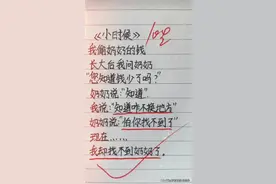 《小时候》
我偷奶奶的钱
长大后我问奶奶
"您知道钱少了吗？"
奶奶说："知道"
我说："知道咋不换地方"
奶奶说"怕你找不到了"
现在……
我却找不到奶奶了。